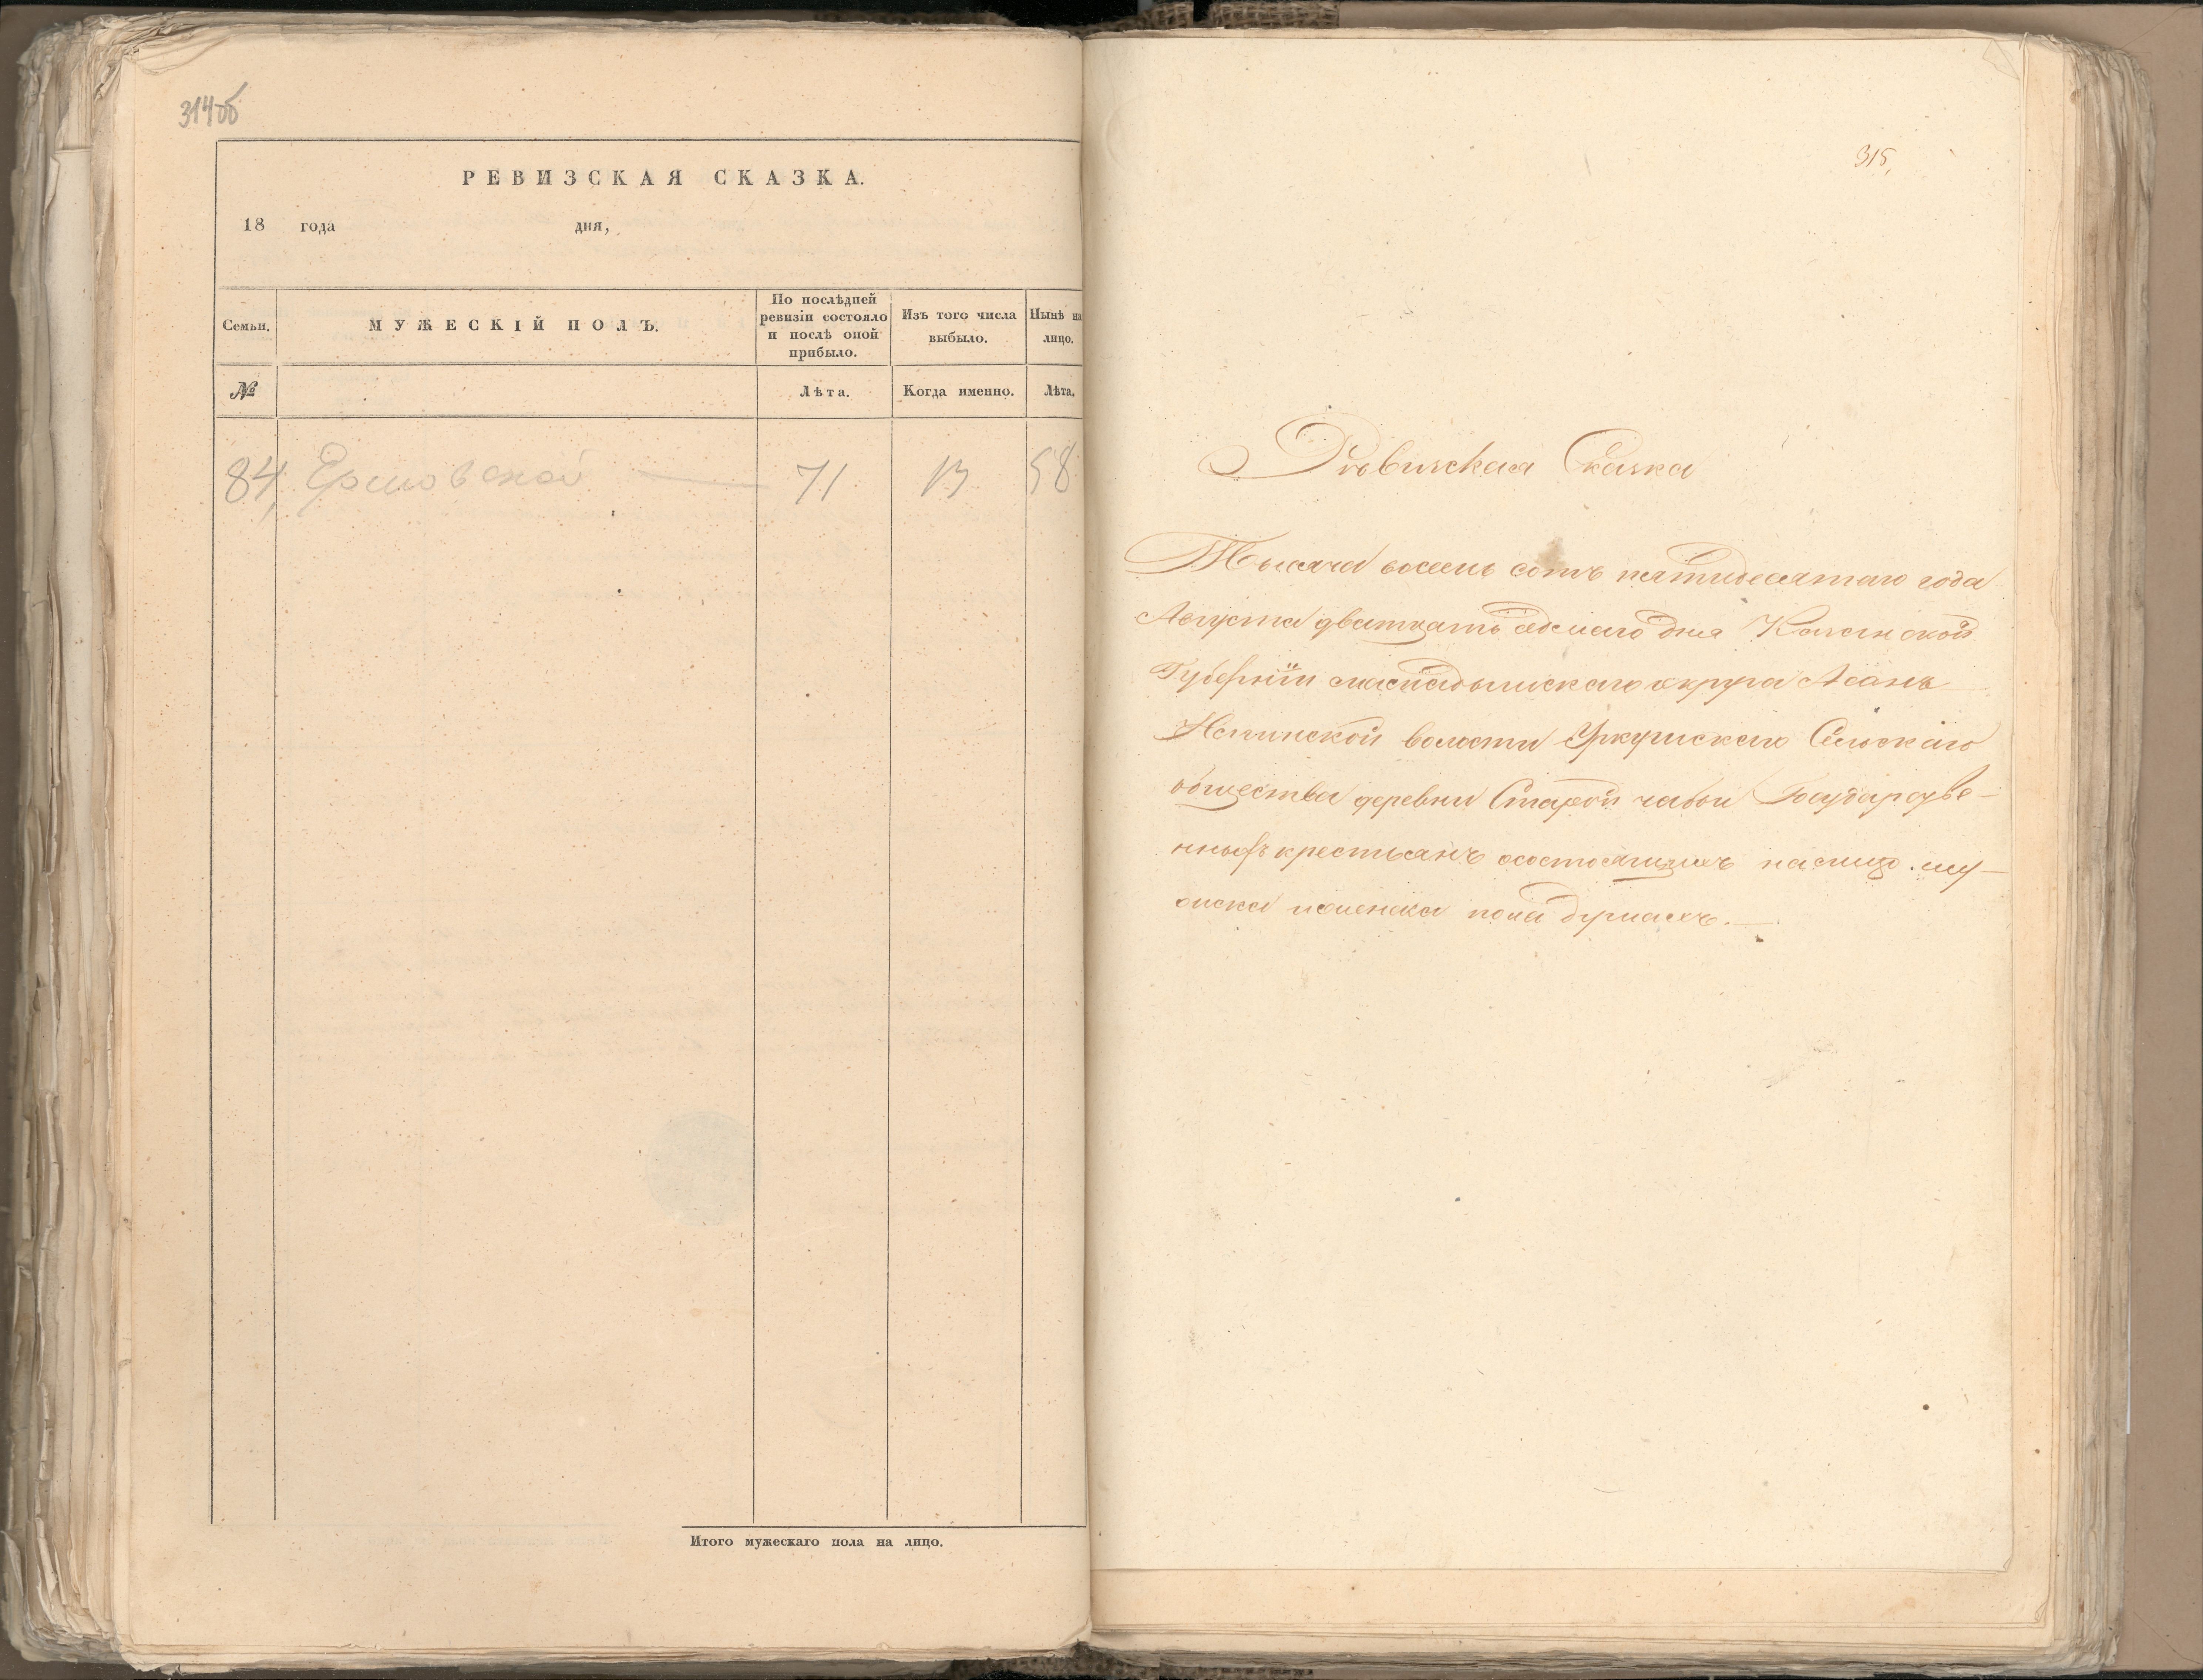 314об
РЕВИЗСКАЯ СКАЗКА.
18 года дня,
Семьи. МУЖЕСКІЙ ПОЛЪ. По послѣдней ревизіи состояло и послѣ оной прибыло. Изъ того числа выбыло. Нынѣ на лицо.
№ Лѣта. Когда именно. Лѣта.
84, 71 13 58
Итого мужескаго пола на лицо.
315,
Ревизская Сказка
Тысяча восемь сотъ пятидесятаго года
Августа дватцать седмаго дня Казанской
Губерніи мамадышскаго округа Асанъ
Елгинской волости Уркушскаго Сельскаго
общества деревни Старой чабьи Государсве-
нныхъ крестьянъ осостоящихъ налицо му-
жска иженска пола душахъ.